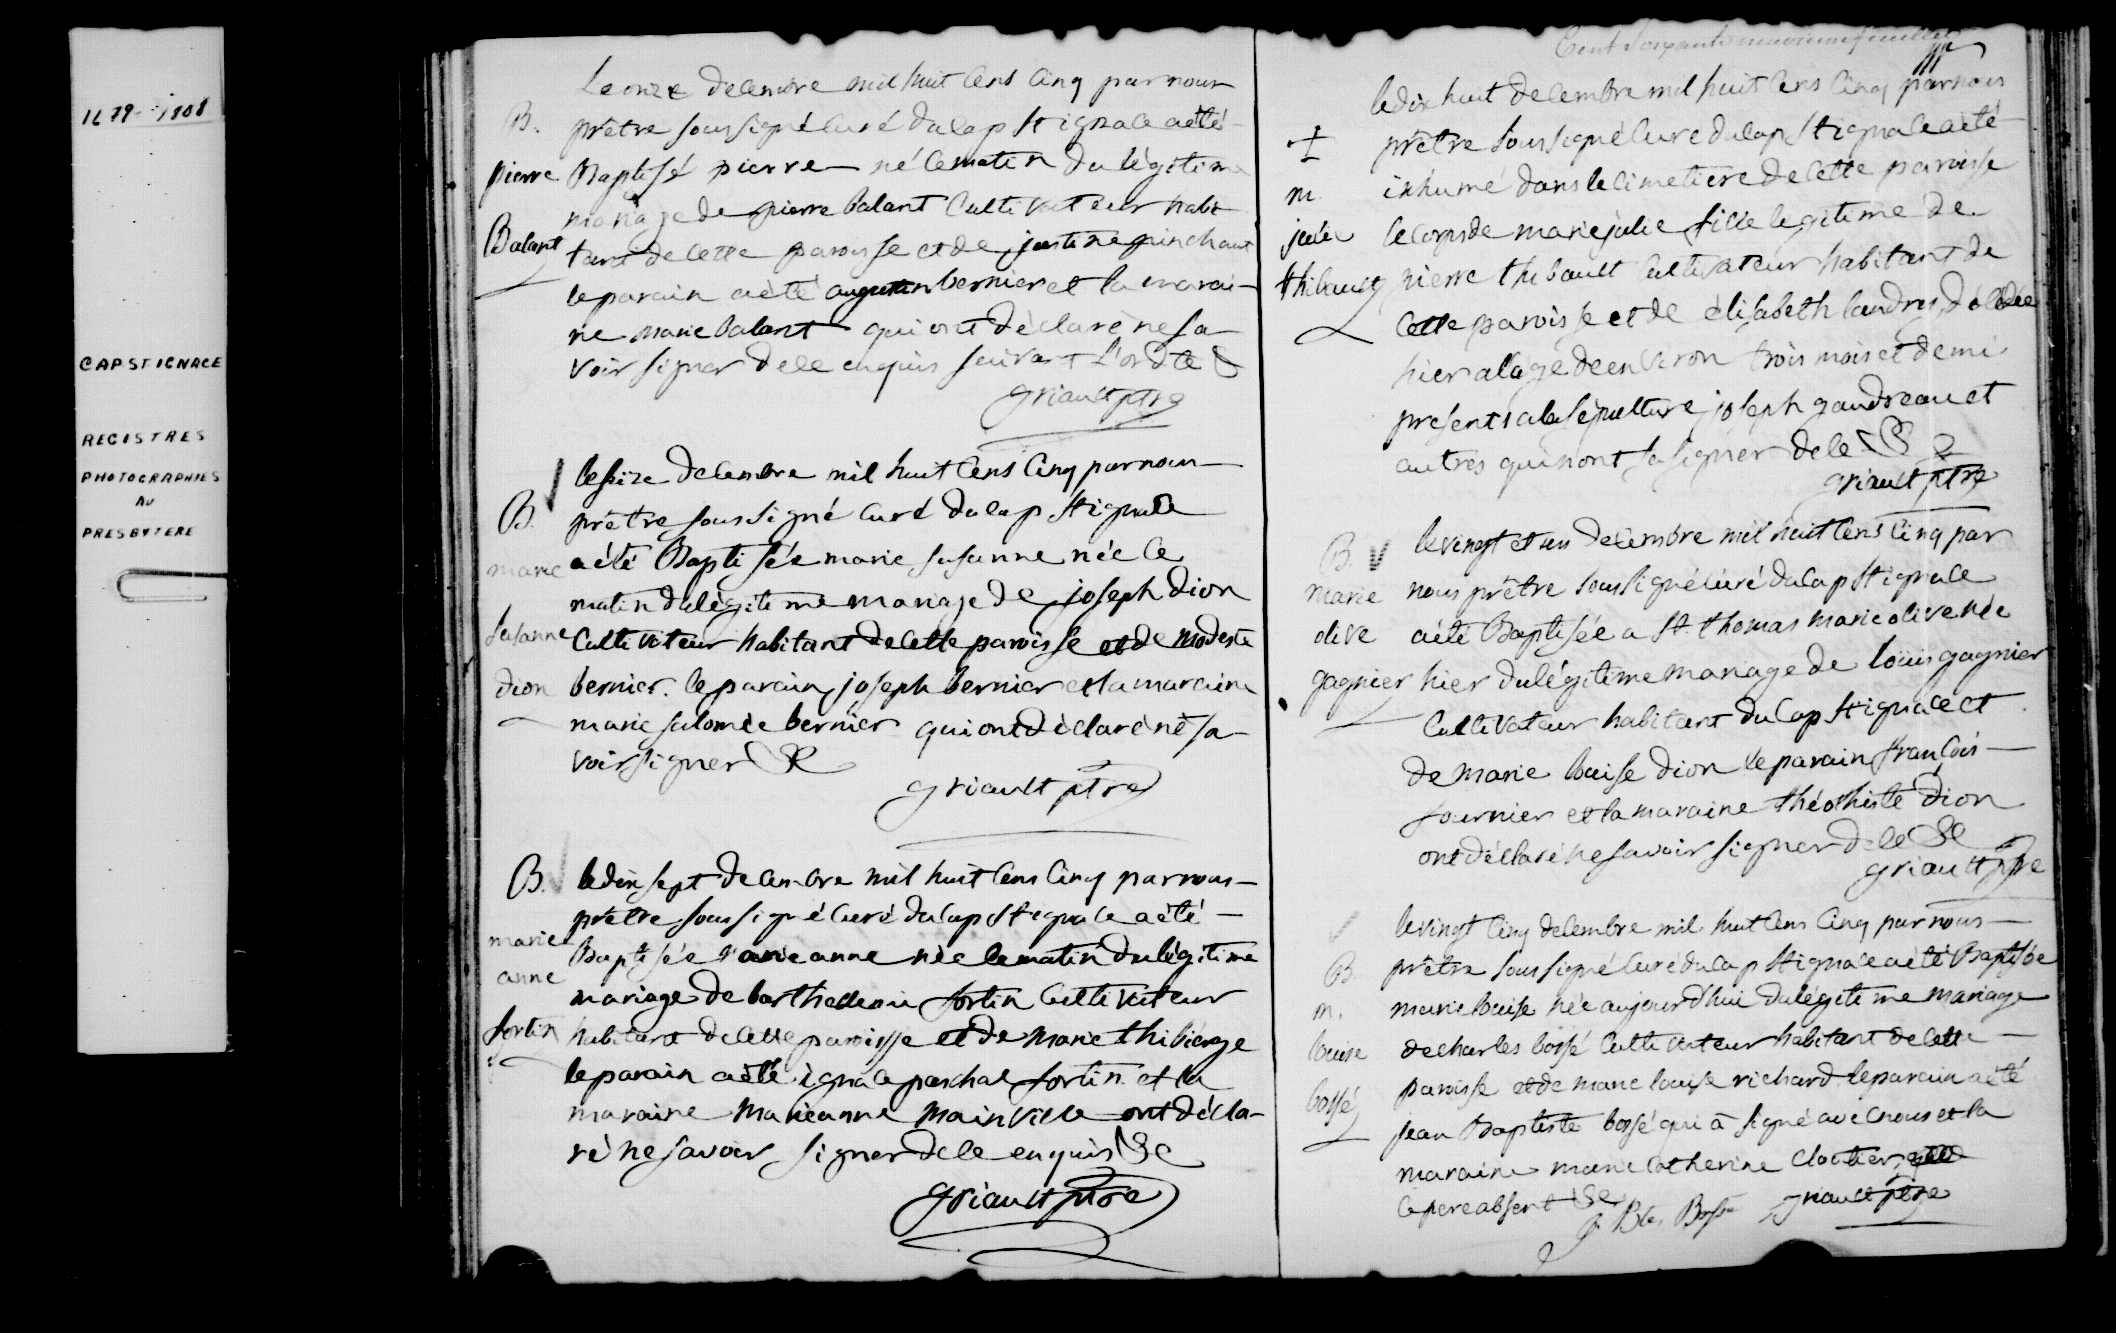 1679-1808
CAP ST IGNACE
REGISTRES
PHOTOGRAPHIES
AU
PRESBYTERE
Le onze decembre mil huit Cens Cinq par nous
B. prêtre soussigné Curé du Cap St ignace a été
pierre Baptisé pierre né Ce matin du légitime
mariage de pierre balant Cultivateur habi
Balant tant de Cette paroisse et de justine guinchant
le parain a été augustin bernier et la marai-
ne marie balant qui ont déclaré ne sa
voir signer de Ce enquis suivant L'ord
griault ptre
le seize decembre mil huit Cens Cinq par nous
B. prêtre soussigné Curé du Cap St ignace
marie a été Baptisée marie susanne née Ce
matin du légitime mariage de joseph dion
susanne Cultivateur habitant de Cette paroisse et de modeste
dion bernier. le parain joseph bernier et la maraine
marie salomée bernier qui ont déclaré ne sa-
voir signer
griault ptre
B. le dix sept decembre mil huit Cens Cinq par nous
prêtre soussigné Curé du Cap St ignace a été
marie Baptisée marie anne née Ce matin du légitime
anne mariage de barthelemi fortin Cultivateur
fortin habitant de Cette paroisse et de marie thibierge
le parain a été ignace paschal fortin et la
maraine marieanne mainville ont décla-
ré ne savoir signer de Ce enquis
griault ptre
Cent soixante neuvieme feuillet
le dix huit decembre mil huit Cens Cinq par nous
prêtre soussigné Curé du Cap St ignace a été
m. inhumé dans le Cimetiere de Cette paroisse
julie le Corps de marie julie fille legitime de
thibault pierre thibault Cultivateur habitant de
Cette paroisse et de élisabeth landry décédée
hier a l'age de environ trois mois et demi
presents a la sépulture joseph gaudreau et
autres qui n'ont su signer de Ce
griault ptre
le vingt et un decembre mil huit Cens Cinq par
B. nous prêtre soussigné Curé du Cap St ignace
marie
olive a été Baptisée a St. thomas marie olive née
gagnier hier du légitime mariage de louis gagnier
Cultivateur habitant du Cap St ignace et
de marie louise dion le parain françois
fournier et la maraine théothiste dion
ont déclaré ne savoir signer de Ce
griault ptre
le vingt Cinq decembre mil huit Cens Cinq par nous
B. prêtre soussigné Curé du Cap St ignace a été Baptisée
m. marie louise née aujourd'hui du légitime mariage
louise de charles bossé Cultivateur habitant de Cette
bossé paroisse et de marie louise richard le parain a été
jean Baptiste bossé qui a signé avec nous et la
maraine marie Catherine cloutier
le pere absent
J. Btes Bossé griault ptre